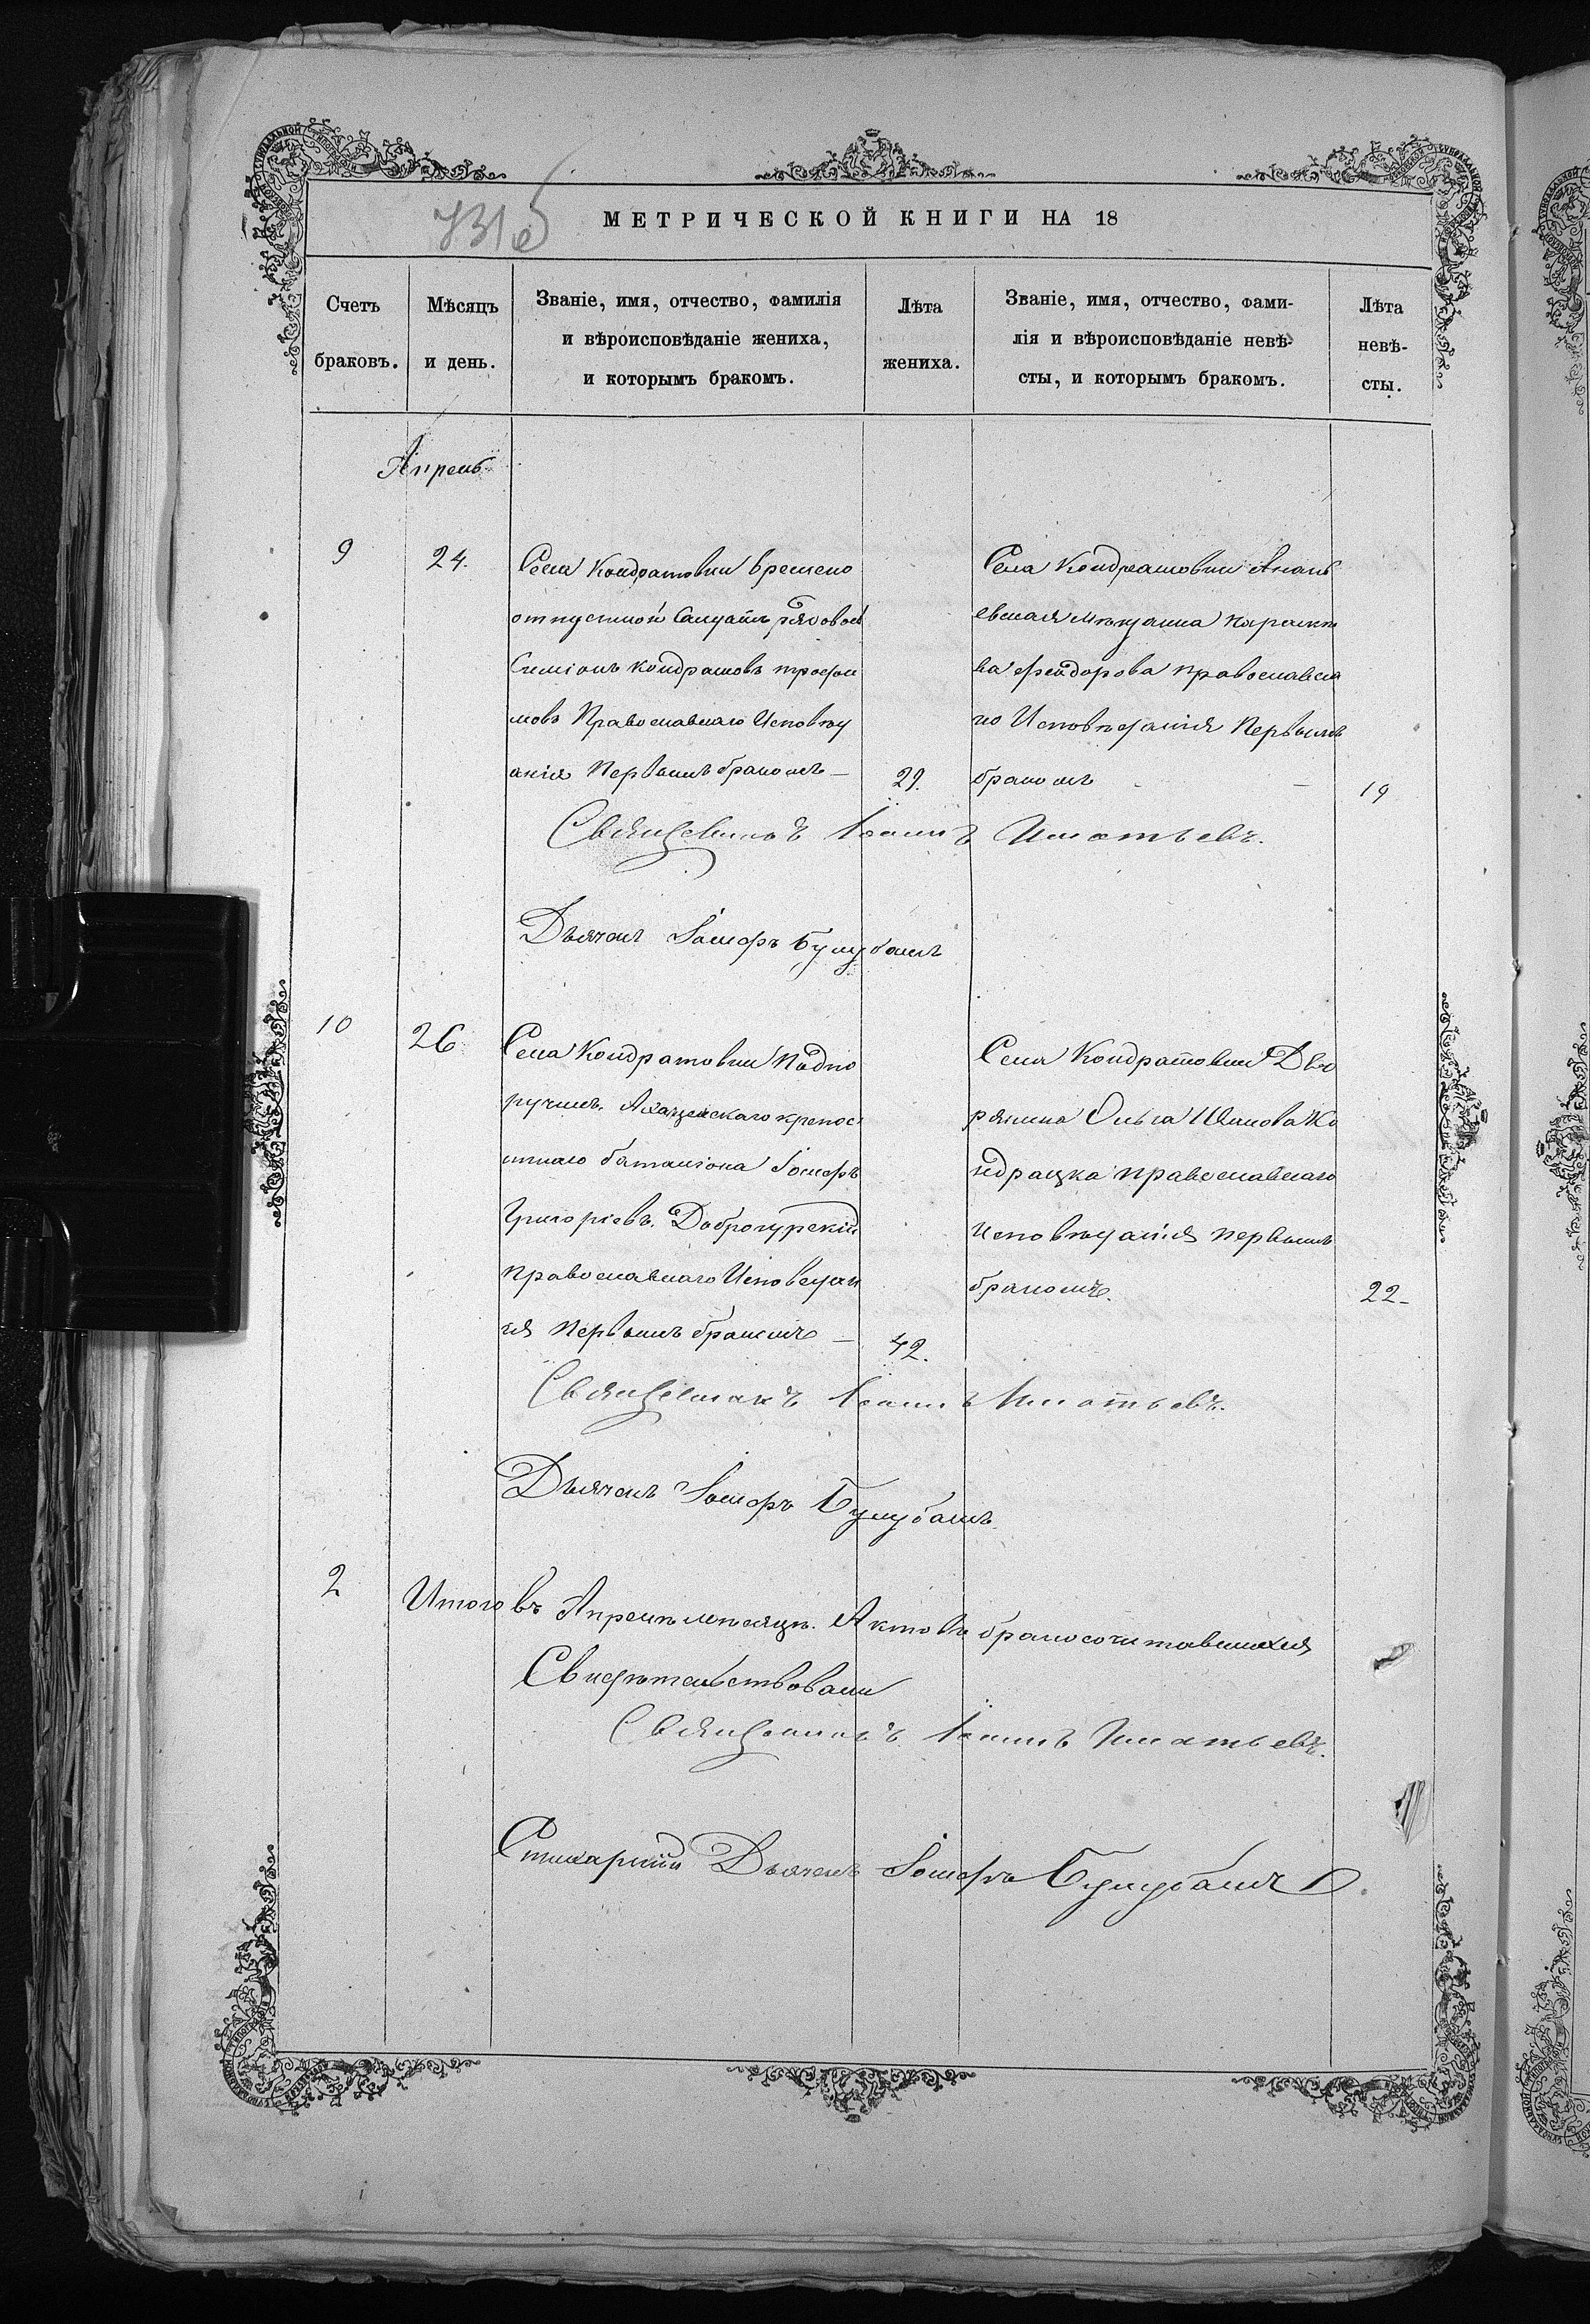 731 об
МЕТРИЧЕСКОЙ КНИГИ НА 18
Счетъ браковъ.
Мѣсяцъ и день.
Званіе, имя, отчество, фамилія
и вѣроисповѣданіе жениха,
и которымъ бракомъ.
Лѣта жениха.
Званіе, имя, отчество, фами-
лія и вѣроисповѣданіе невѣ-
сты, и которымъ бракомъ.
Лѣта невѣ-
сты.
Апрель
9
24.
Села Кондратовки времено
отпусткой Салдатъ рядовой
Симіонъ Кондратовъ трофи
мовъ Православнаго Исповѣд
анія Первымъ бракомъ —
29.
Села Кондратовки Анань
евская мещанка Параске
ва Феодорова православна
го Исповѣданія Первымъ
бракомъ —
19
Священникъ Іоаннъ Игнатьевъ.
Дьячекъ Іосифъ
10
26
Села Кондратовки Подпо
ручикъ крепос
тнаго баталіона Іосифъ
Григоріевъ Доброгурскій
Православнаго Исповедан
ія Первымъ бракомъ —
42.
Села Кондратовки Дво
рянина Ольга Ко
ндрацка православнаго
Исповѣданія первымъ
бракомъ.
22-
Священникъ Іоаннъ Игнатьевъ.
Дьячекъ Іосифъ
2
Итого въ Апреле месяце. Актовъ бракосочитавшихся
Свидѣтельствовали
Священникъ Іоаннъ Игнатьевъ.
Стихарный Дьячекъ Іосифъ